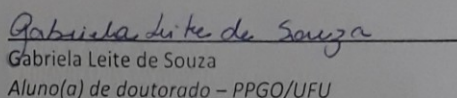 Gabriela Leite de Souza
Gabriela Leite de Souza
Aluno(a) de doutorado – PPGO/UFU